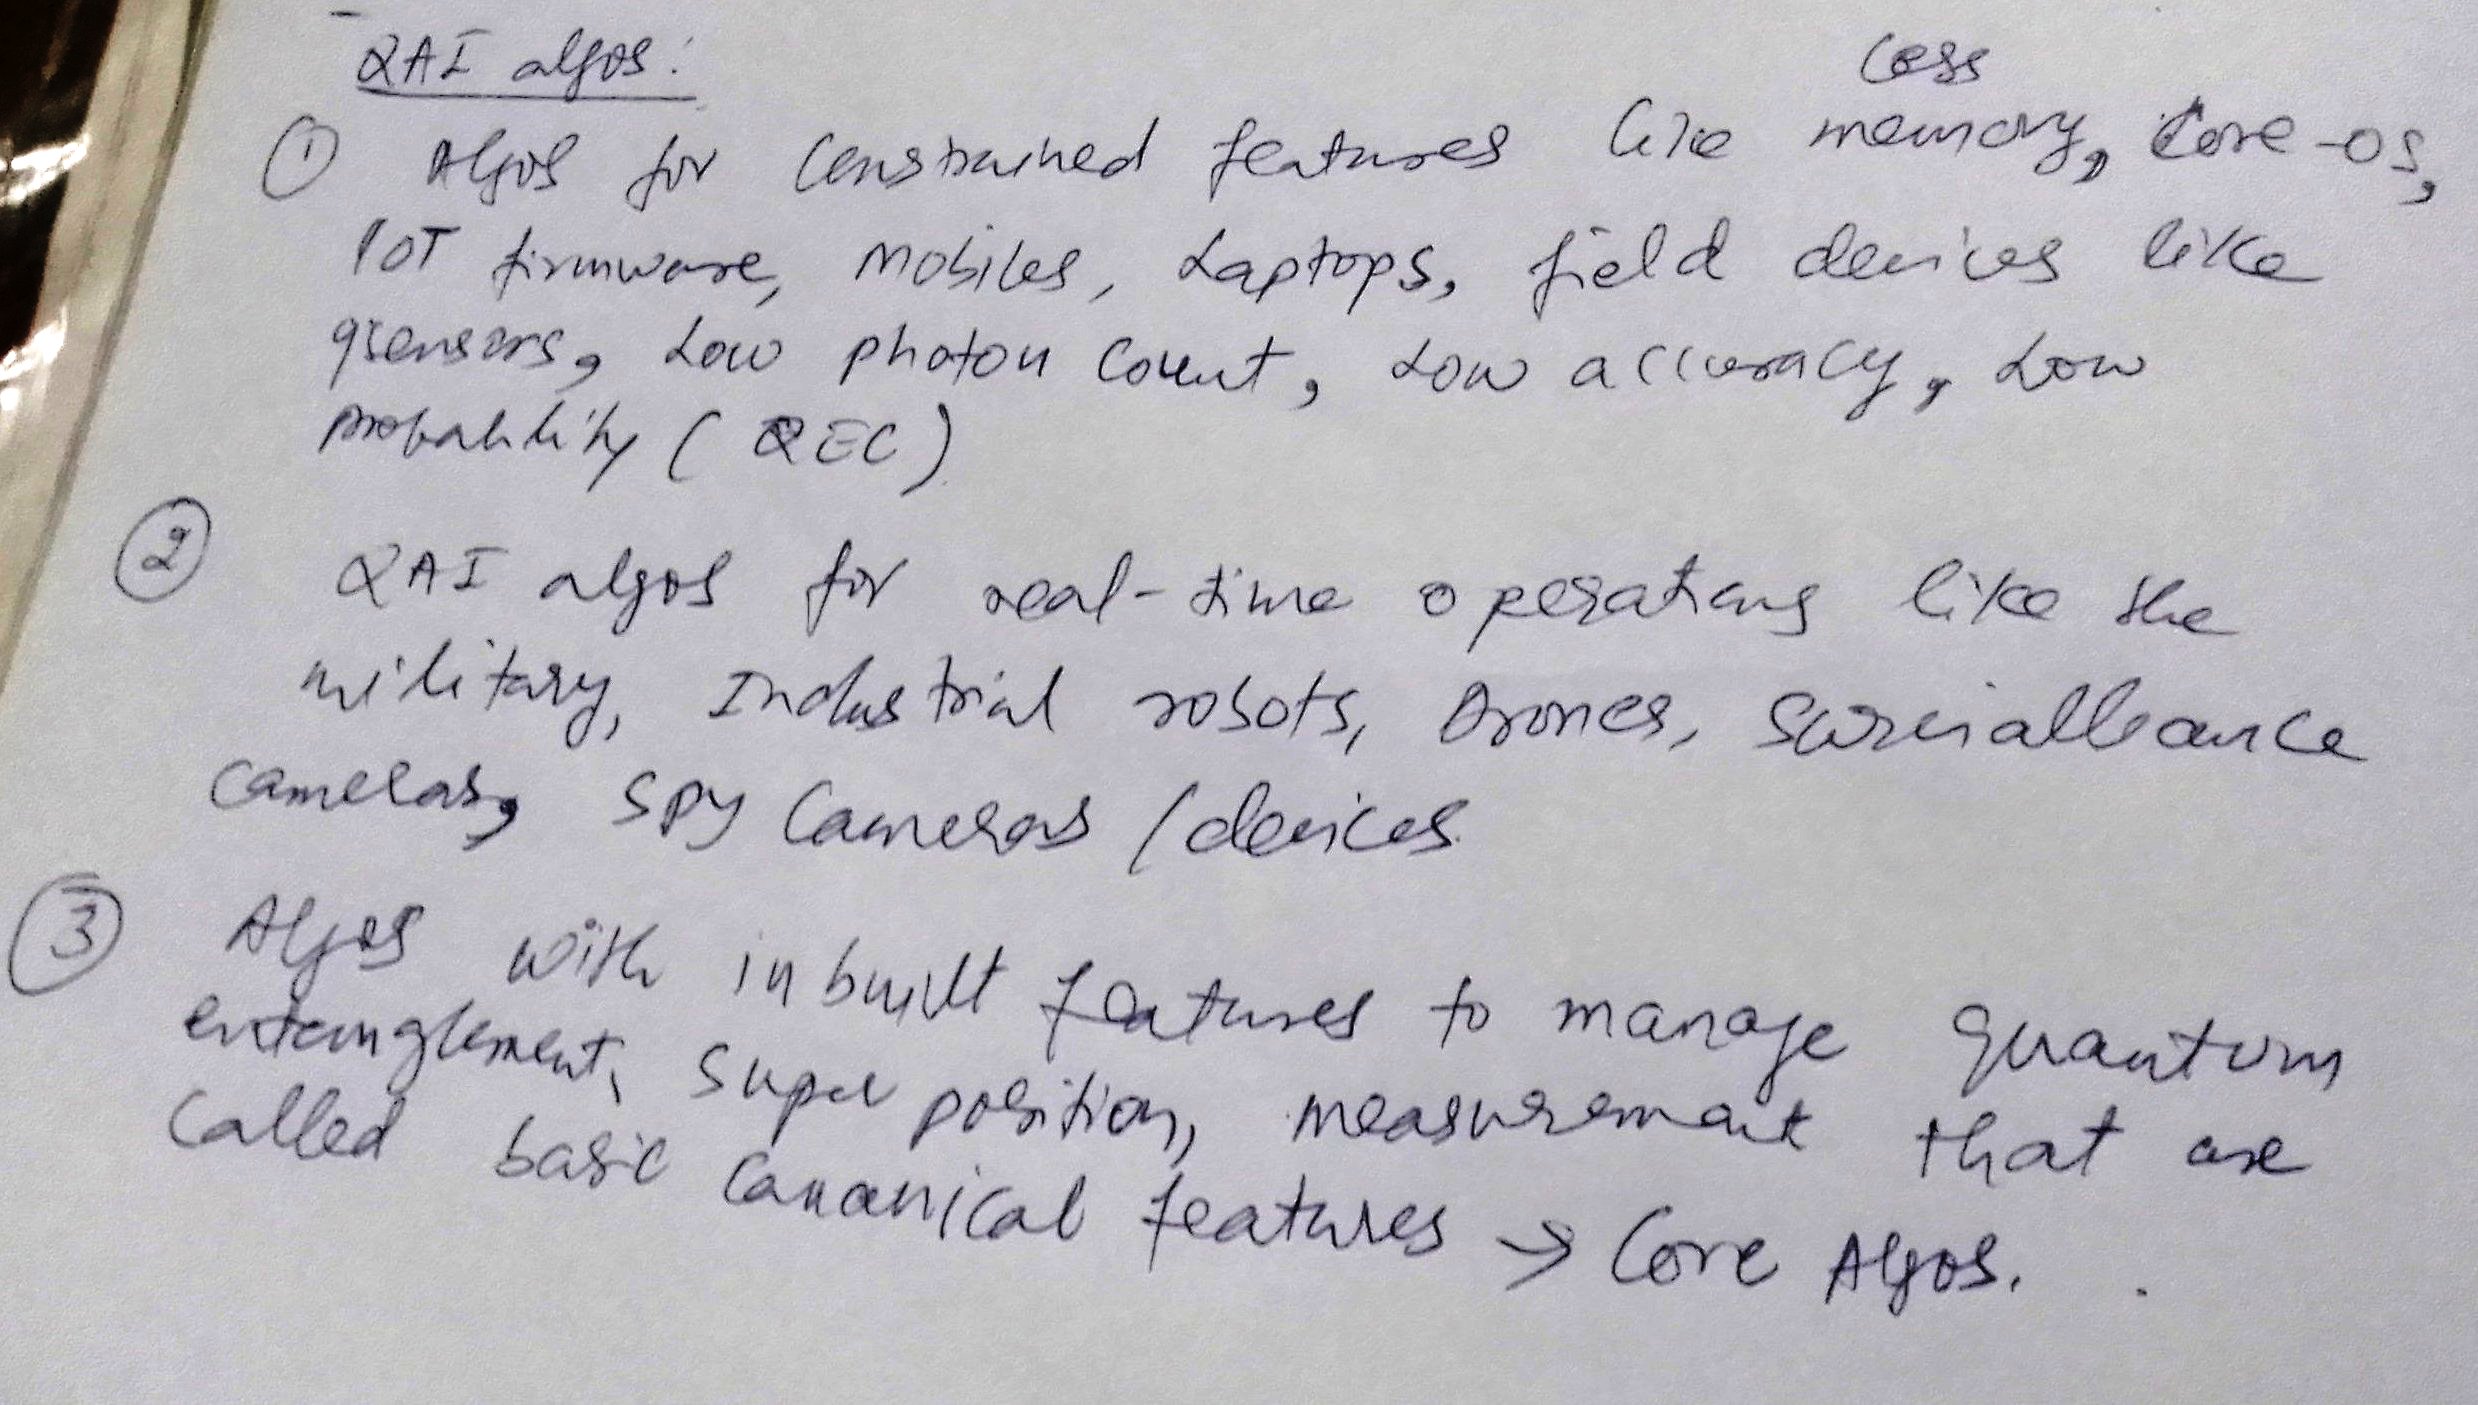 QAI algos:
less
① Algos for constrained features like memory, Core-OS,
IOT firmware, Mobiles, Laptops, field devices like
qsensors, Low photon count, Low accuracy, Low
probability (QEC)
② QAI algos for real-time operations like the
military, Industrial robots, Drones, Survialleance
cameras, spy cameras / devices.
③ Algos with inbuilt features to manage quantum
entanglement, super position, measurement that are
called basic cananical features → Core Algos.